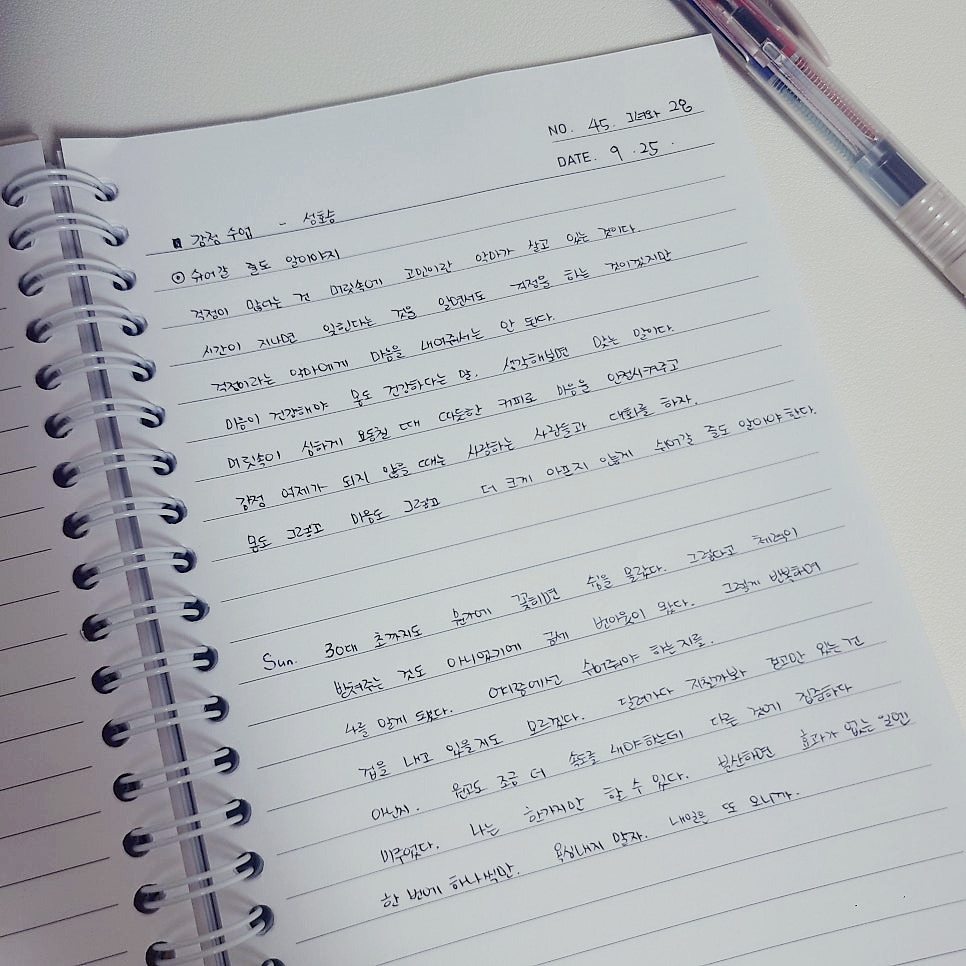 NO. 45. 그녀와 28
DATE. 9. 25.
■ 감정 수업 - 성호승
⊙ 쉬어갈 줄도 알아야지
걱정이 많다는 건 머릿속에 고민이란 악마가 살고 있는 것이다.
시간이 지나면 잊힌다는 것을 알면서도 걱정을 하는 것이겠지만
걱정이라는 악마에게 마음을 내어줘서는 안 된다.
마음이 건강해야 몸도 건강하다는 말. 생각해보면 맞는 말이다.
머릿속이 심하게 요동칠 때 따듯한 커피로 마음을 안정시켜주고
감정 억제가 되지 않을 때는 사랑하는 사람들과 대화를 하자.
몸도 그렇고 마음도 그렇고 더 크게 아프지 않게 쉬어갈 줄도 알아야 한다.
Sun. 30대 초까지도 뭔가에 꽂히면 쉼을 몰랐다. 그렇다고 체력이
받쳐주는 것도 아니었기에 금세 번아웃이 왔다. 그렇게 반복하며
나를 알게 됐다. 어디쯤에선 쉬어줘야 하는지를.
겁을 내고 있을지도 모르겠다. 달려가다 지칠까봐 걷고만 있는 건
아닌지. 원고도 조금 더 속도를 내야 하는데 다른 것에 집중하다
미루었다. 나는 한가지만 할 수 있다. 분산하면 효과가 없는 일엔
한 번에 하나씩만. 욕심내지 말자. 내일은 또 오니까.